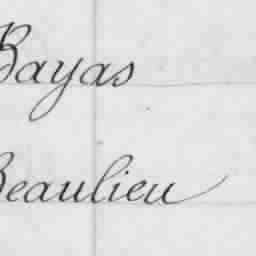 Bayas
Beaulieu